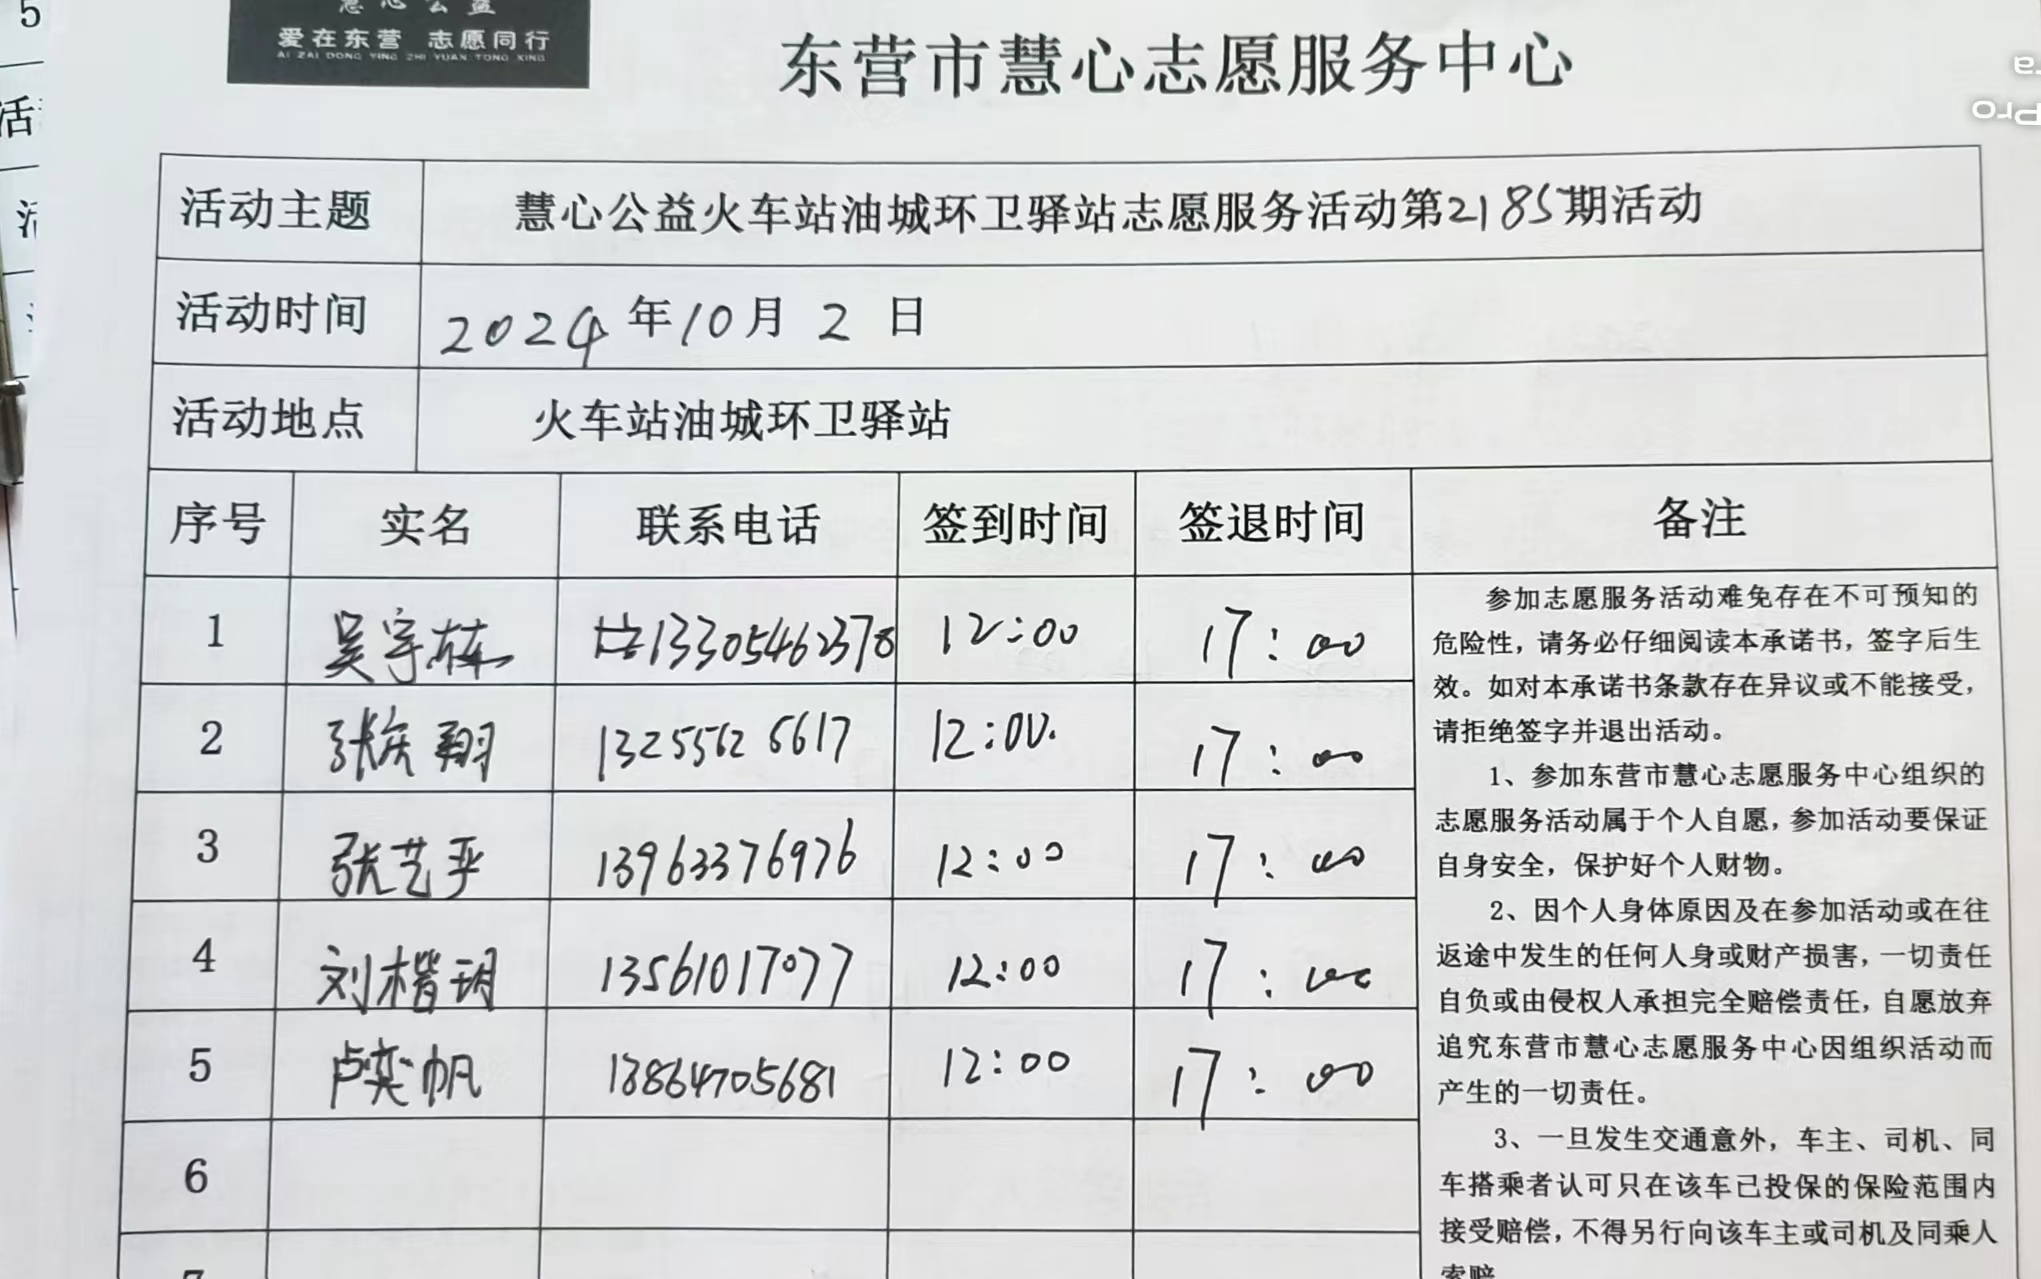 5
慧心公益
爱在东营 志愿同行
AI ZAI DONG YING ZHI YUAN TONG XING
东营市慧心志愿服务中心
Pro
活动主题 慧心公益火车站油城环卫驿站志愿服务活动第2185期活动
活动时间 2024年10月2日
活动地点 火车站油城环卫驿站
序号 实名 联系电话 签到时间 签退时间 备注
1 吴宇栋 13305462378 12:00 17:00
2 张庆翔 13255626617 12:00. 17:00
3 张艺平 13963376976 12:00 17:00
4 刘楷玥 13561017077 12:00 17:00
5 卢奕帆 13864705681 12:00 17:00
6
7
参加志愿服务活动难免存在不可预知的
危险性，请务必仔细阅读本承诺书，签字后生
效。如对本承诺书条款存在异议或不能接受，
请拒绝签字并退出活动。
1、参加东营市慧心志愿服务中心组织的
志愿服务活动属于个人自愿，参加活动要保证
自身安全，保护好个人财物。
2、因个人身体原因及在参加活动或在往
返途中发生的任何人身或财产损害，一切责任
自负或由侵权人承担完全赔偿责任，自愿放弃
追究东营市慧心志愿服务中心因组织活动而
产生的一切责任。
3、一旦发生交通意外，车主、司机、同
车搭乘者认可只在该车已投保的保险范围内
接受赔偿，不得另行向该车主或司机及同乘人
索赔